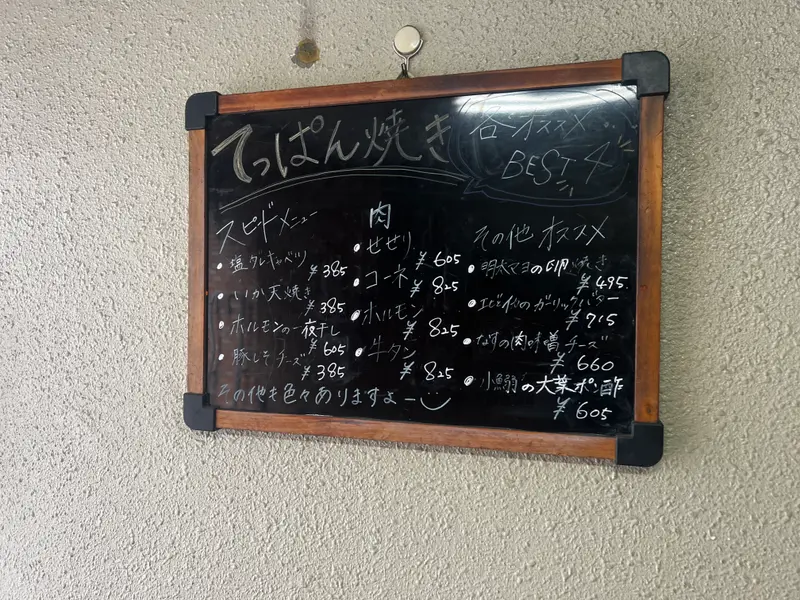 てっぱん焼き
各オススメ
BEST 4
スピードメニュー
・塩ダレキャベツ
¥385
・いか天焼き
¥385
・ホルモンの一夜干し
¥605
・豚しそチーズ
¥385
肉
・せせり
¥605
・コーネ
¥825
・ホルモン
¥825
・牛タン
¥825
その他オススメ
・明太マヨの卵焼き
¥495
・エビと他のガーリックバター
¥715
・なすの肉味噌チーズ
¥660
・小鰯の大葉ポン酢
¥605
その他も色々ありますよー